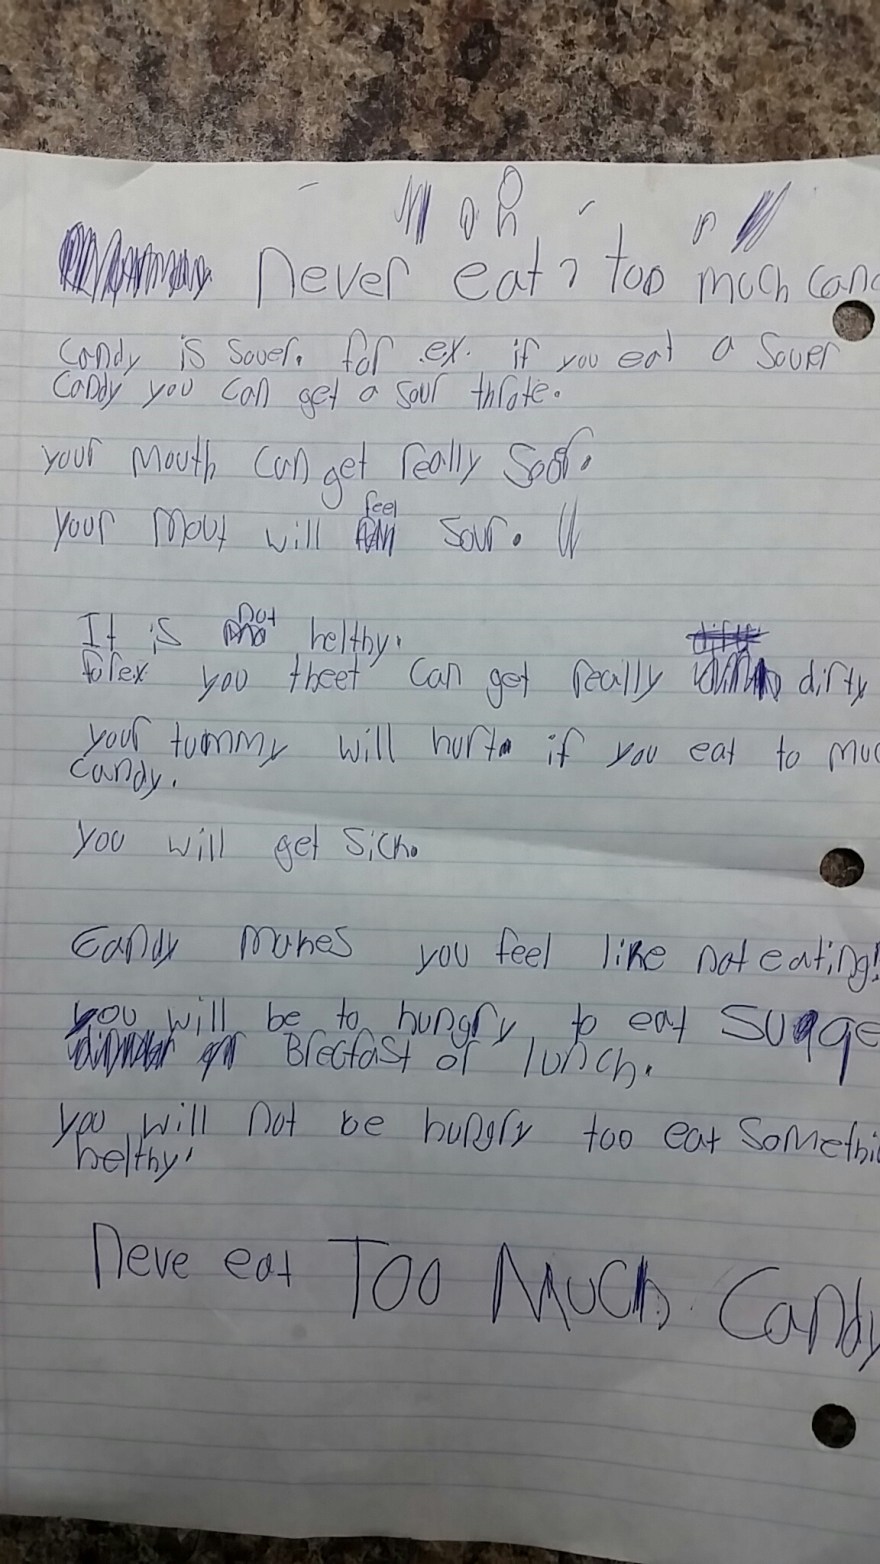 never eat too much can
Candy is Souer. for ex. if you eat a Souer
Candy you can get a sour throte.
your mouth can get really Soor.
your mout will feel sour.
It is not helthy.
forex you theet can get really dirty
your tummy will hurt if you eat to muc
Candy.
you will get sick.
Candy makes you feel like not eating!
you will be to hungry to eat sugge
Brecfast or lunch.
you will not be hungry too eat somethi
helthy!
neve eat Too Much Candy